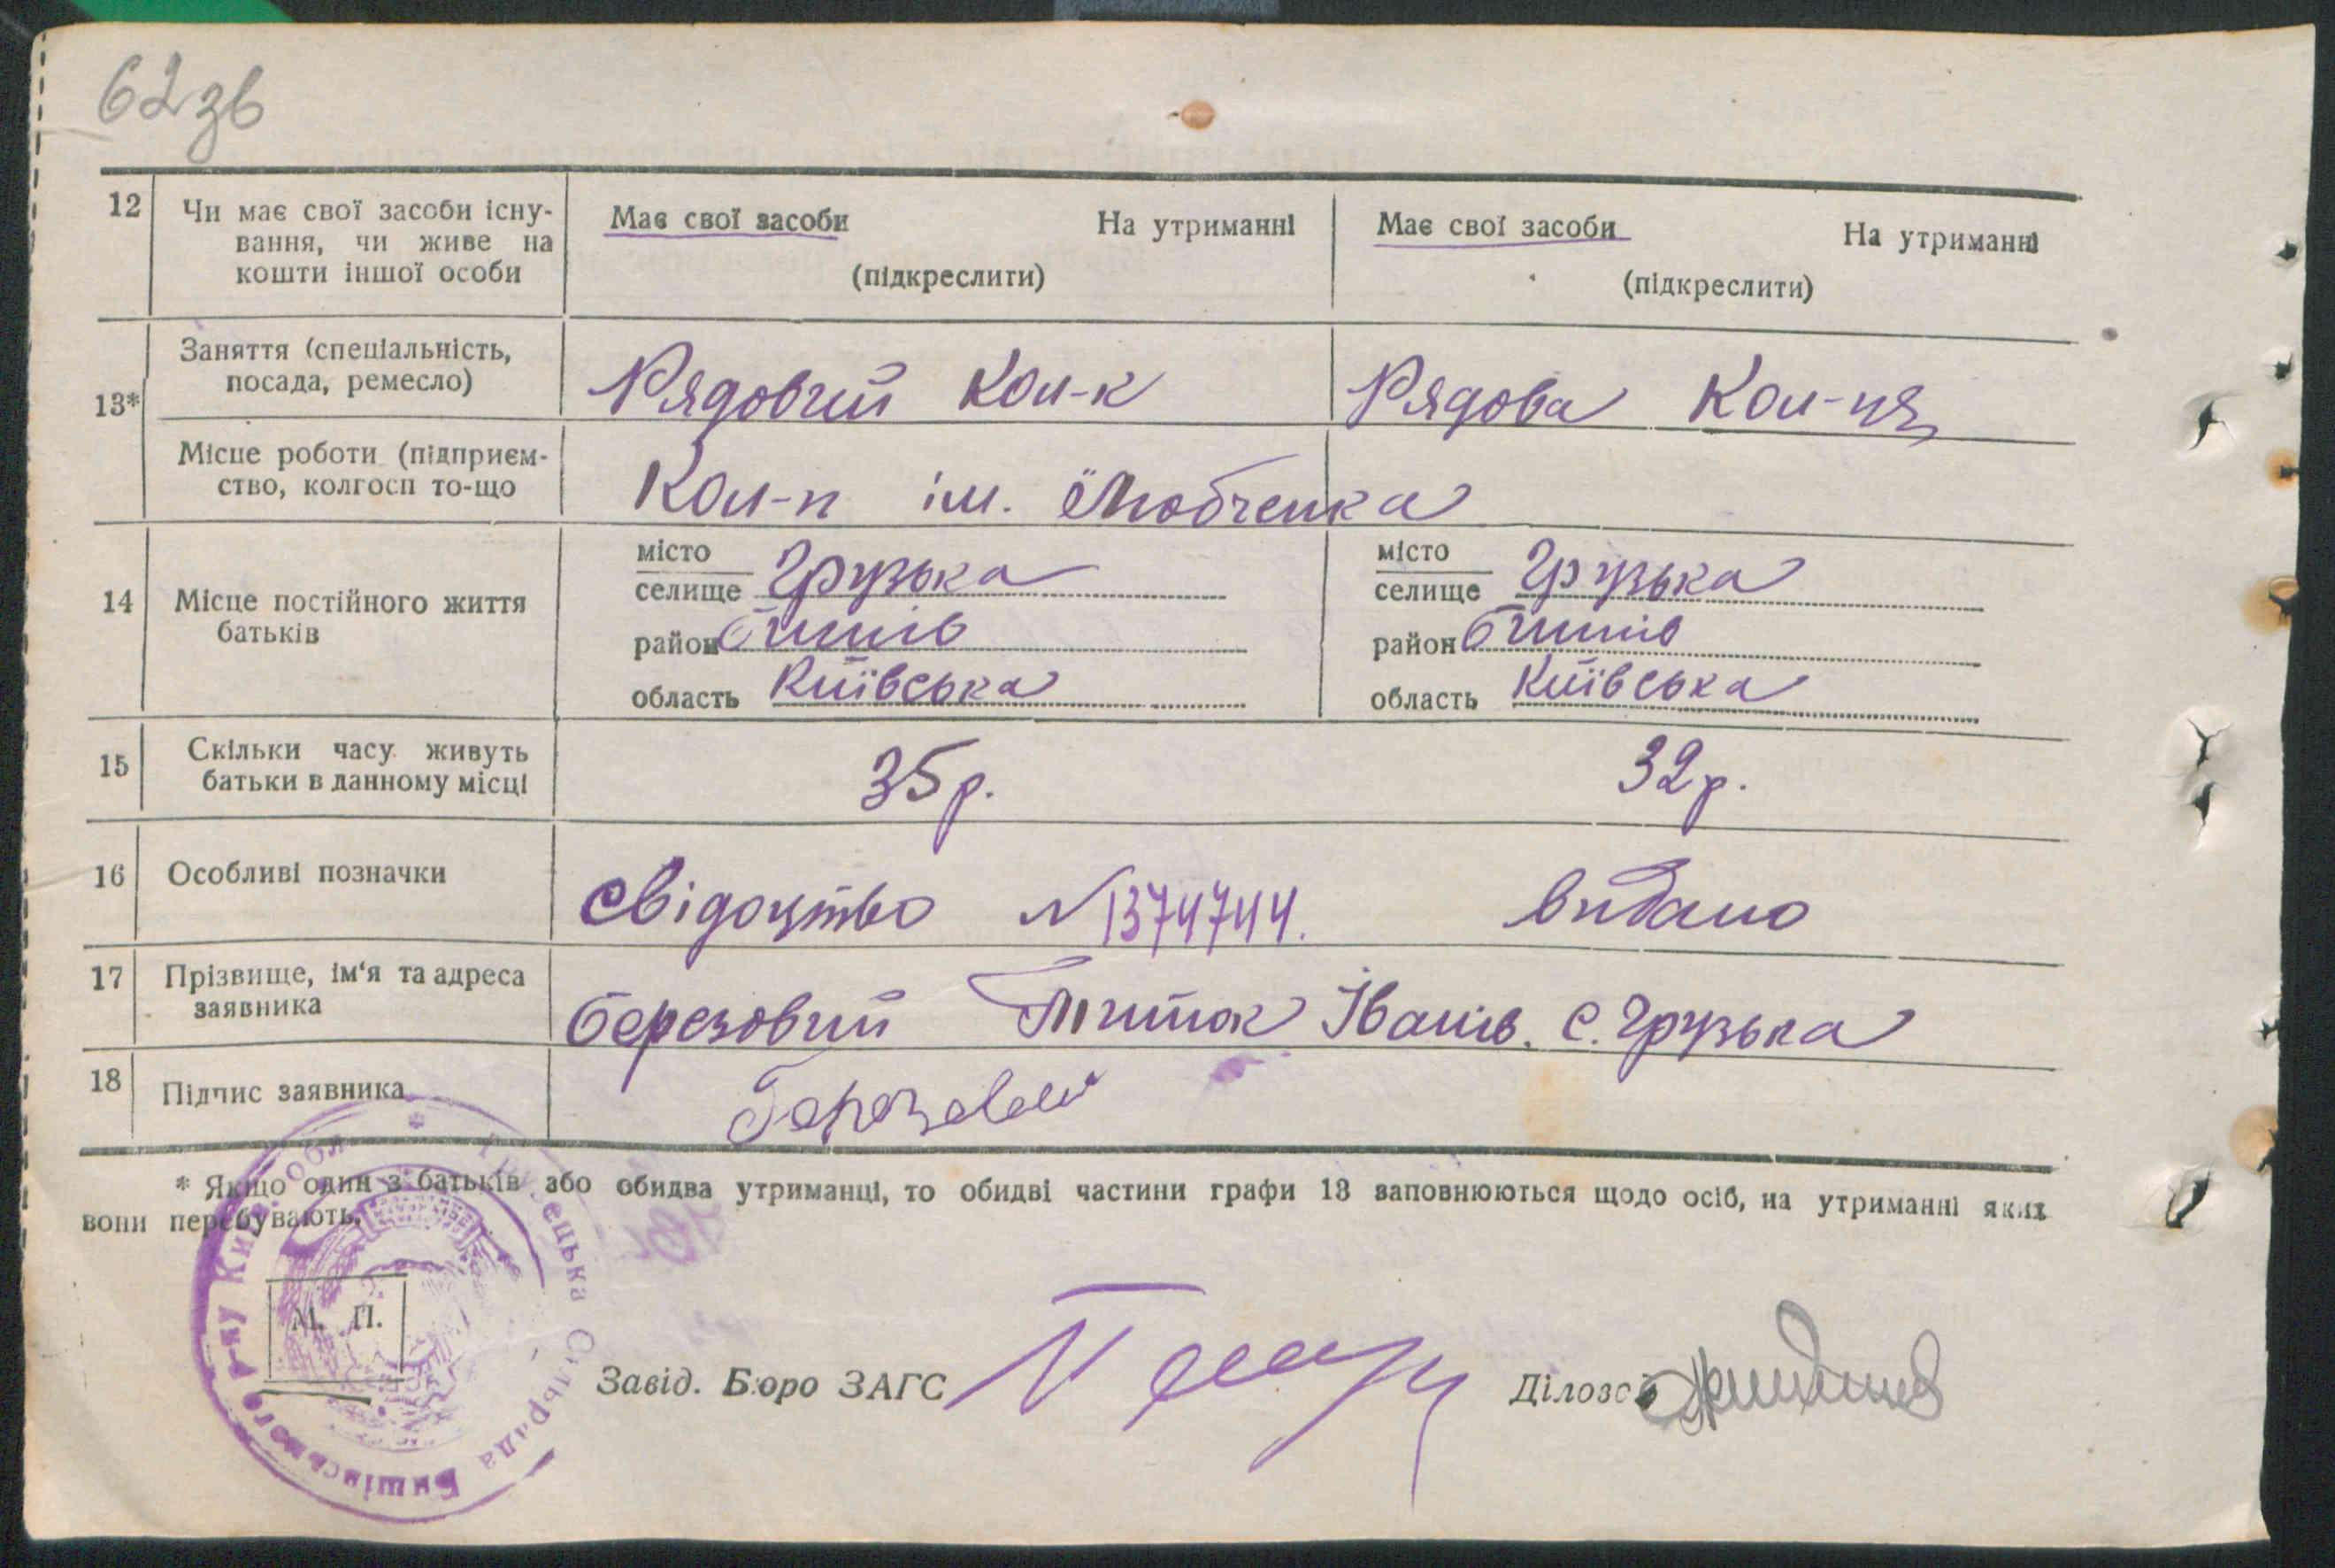 62зв
12 Чи має свої засоби існу- Має свої засоби На утриманні Має свої засоби На утриманні
вання, чи живе на
кошти іншої особи (підкреслити) (підкреслити)
Заняття (спеціальність,
посада, ремесло) Рядовий Кол-к Рядова Кол-ця
13*
Місце роботи (підприєм-
ство, колгосп то-що Кол-п ім. Любченка
місто місто
селище Грузька селище Грузька
14 Місце постійного життя
батьків
район Бишів район Бишів
область Київська область Київська
15 Скільки часу живуть
батьки в данному місці 35 р. 32 р.
16 Особливі позначки Свідоцтво N 1374744. видано
17 Прізвище, ім'я та адреса
заявника Березовий Титок Іванів. с. Грузька
18 Підпис заявника
* Якщо один з батьків або обидва утриманці, то обидві частини графи 13 заповнюються щодо осіб, на утриманні яких
вони перебувають.
М. П.
Завід. Бюро ЗАГС Діловод
Сільрада Бишівського Р-ну Київ. обл